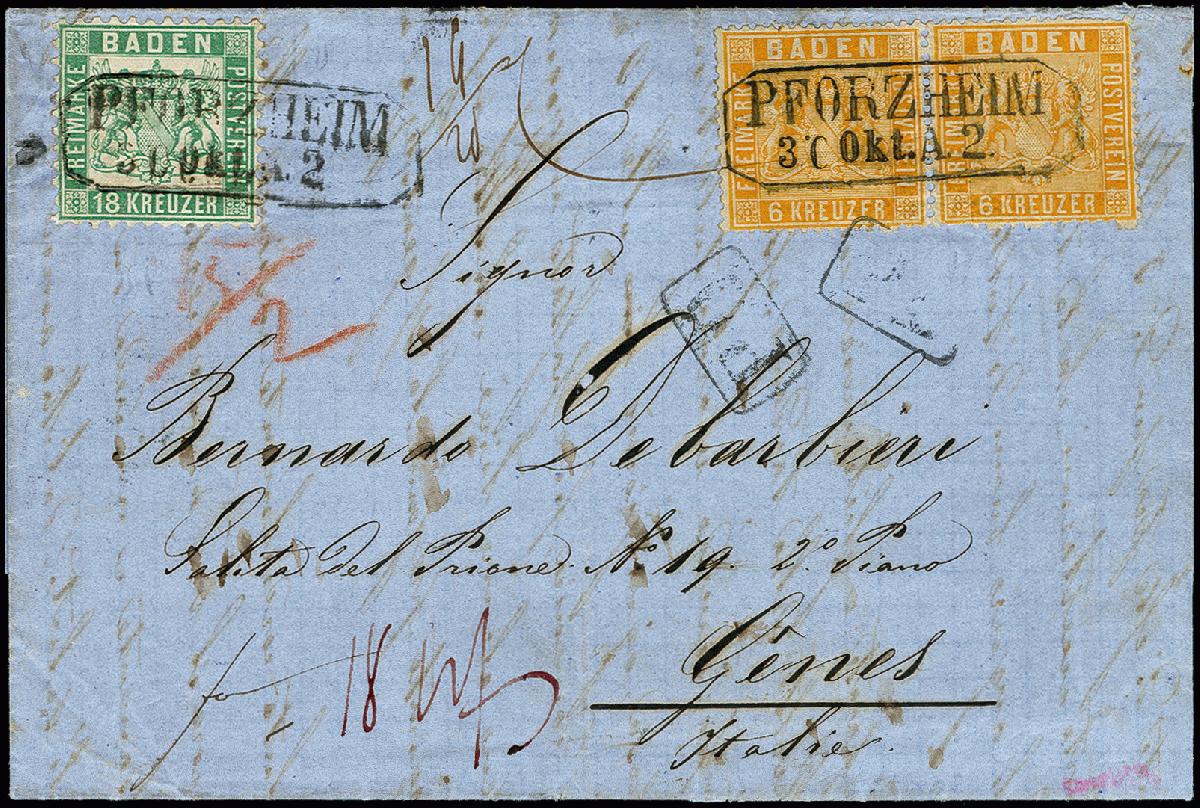 BADEN
FREIMARKE
POSTVEREIN
18 KREUZER
PFORZHEIM
30 Okt. A. 2
BADEN
FREIMARKE
POSTVEREIN
6 KREUZER
BADEN
FREIMARKE
POSTVEREIN
6 KREUZER
PFORZHEIM
30 Okt. A. 2.
Signor
Bernardo Debarbieri
Salita del Prione No. 19. 2o. Piano
Gênes
Italie.
18